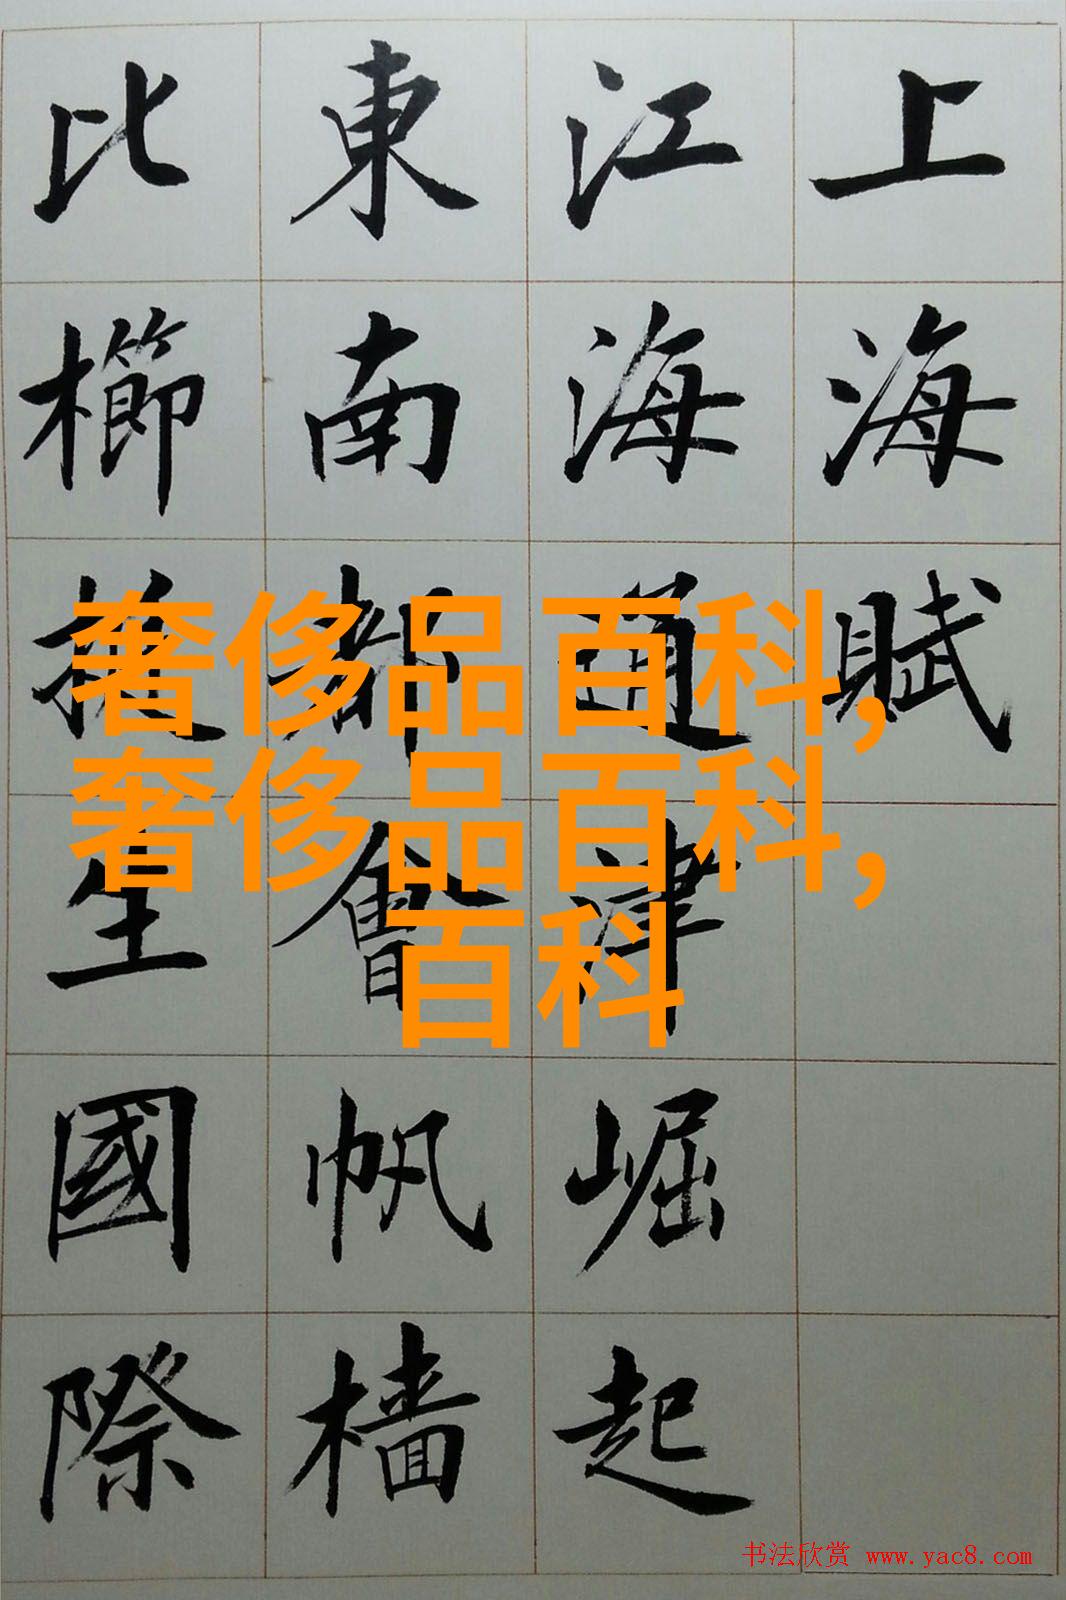 上海賦
江海通津崛起
東南都會帆檣
比櫛生國際
奢侈品百科,
奢侈品百科,
百科
书法欣赏 www.yac8.com